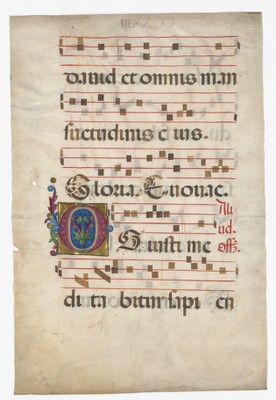 dauid et omnis man
suetudinis eius.
Gloria. Euouae.
Os iusti me
ditabitur sapi en